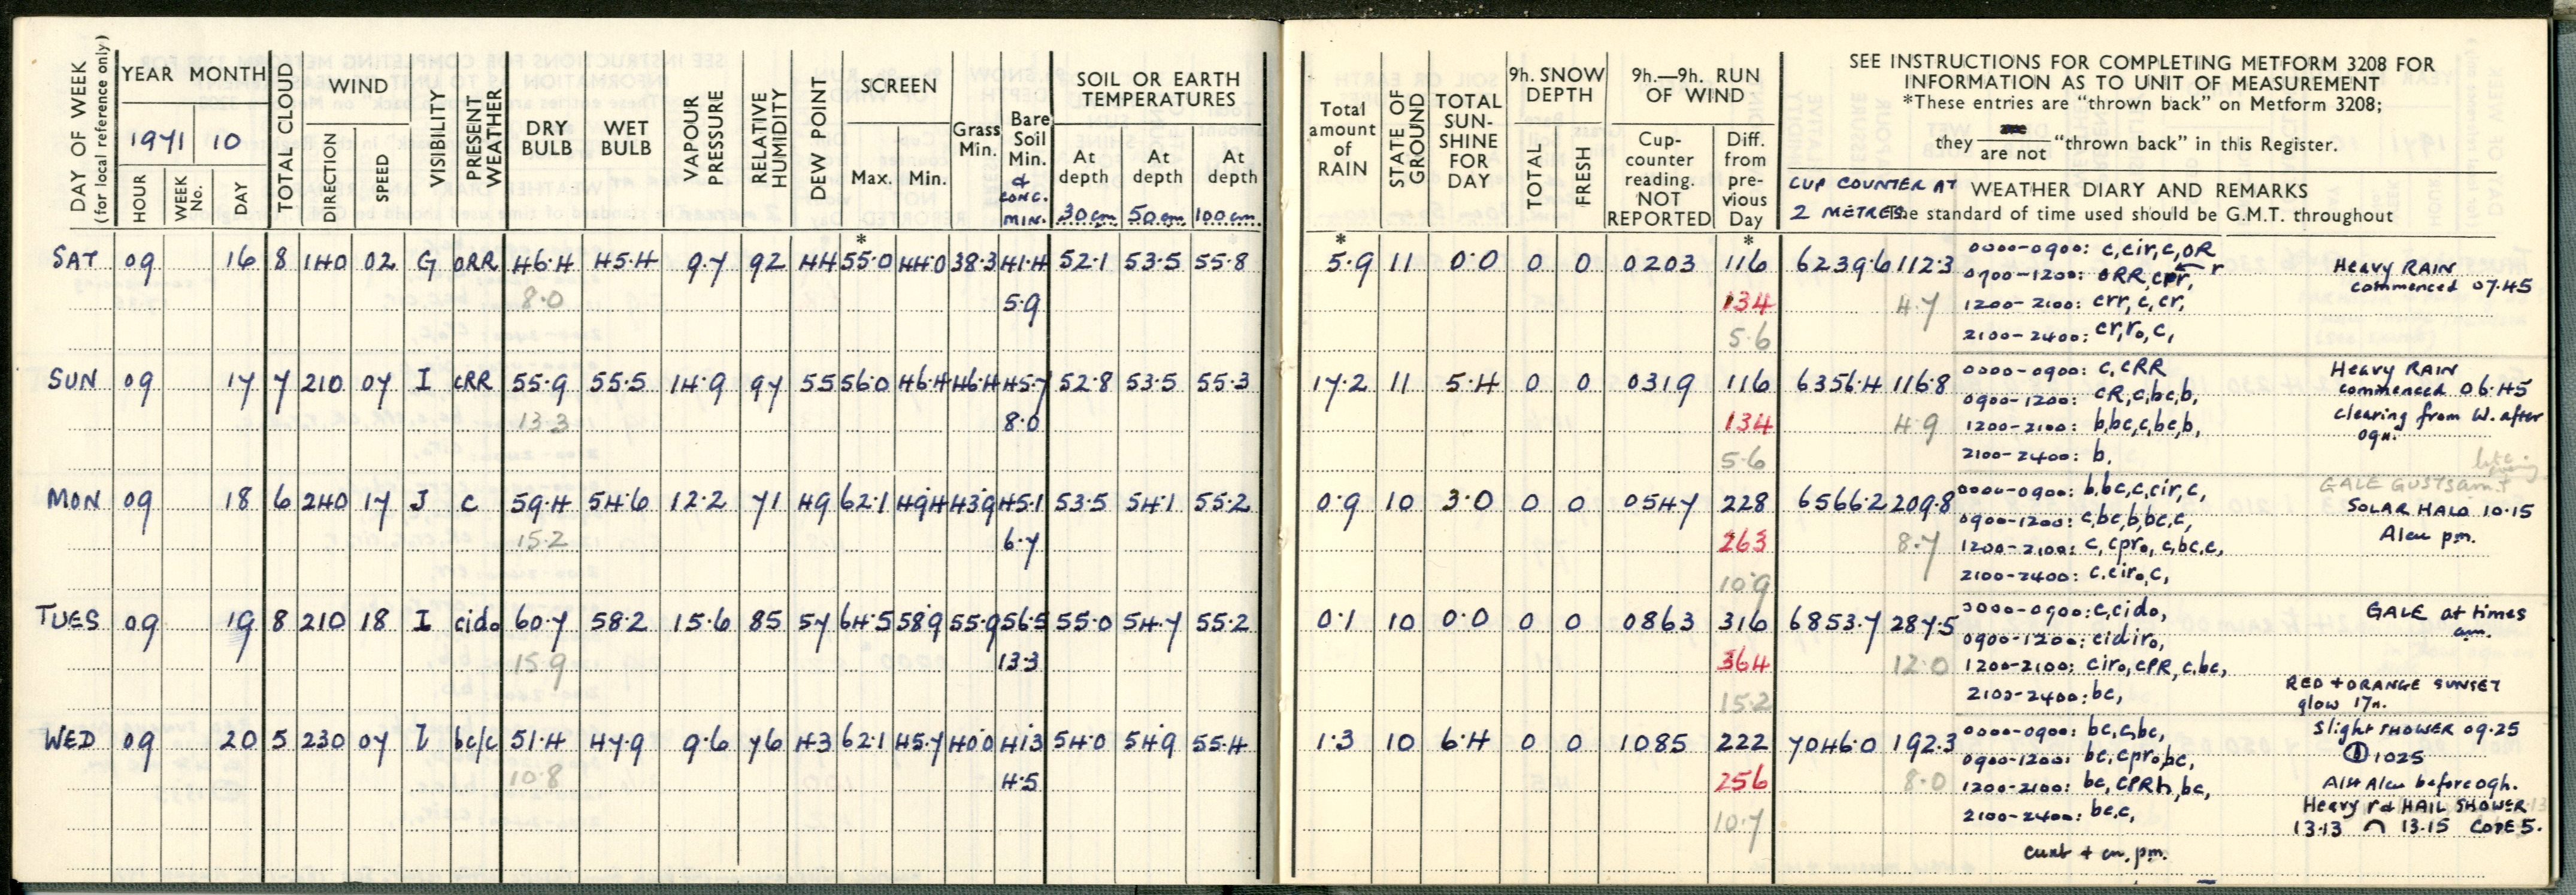 DAY OF WEEK (for local reference only)
YEAR MONTH
1971 10
HOUR WEEK No. DAY
TOTAL CLOUD
WIND
DIRECTION SPEED
VISIBILITY
PRESENT WEATHER
DRY BULB
WET BULB
VAPOUR PRESSURE
RELATIVE HUMIDITY
DEW POINT
SCREEN
Max. Min.
Grass Min.
Bare Soil Min. & CONC. MIN.
SOIL OR EARTH TEMPERATURES
At depth 30 cm. At depth 50 cm. At depth 100 cm.
Total amount of RAIN
STATE OF GROUND
TOTAL SUN-SHINE FOR DAY
9h. SNOW DEPTH
TOTAL FRESH
9h.—9h. RUN OF WIND
Cup-counter reading. NOT REPORTED
Diff. from pre-vious Day
SEE INSTRUCTIONS FOR COMPLETING METFORM 3208 FOR
INFORMATION AS TO UNIT OF MEASUREMENT
*These entries are "thrown back" on Metform 3208;
they are not "thrown back" in this Register.
CUP COUNTER AT 2 METRES
WEATHER DIARY AND REMARKS
The standard of time used should be G.M.T. throughout
* * *
SAT 09 16 8 140 02 G ORR 46.4 45.4 9.7 92 44 55.0 44.0 38.3 41.4 52.1 53.5 55.8 5.9 11 0.0 0 0 0203 116 6239.6 112.3
8.0 5.9 134 4.7
5.6
0000-0900: c, cir, c, OR
0900-1200: ORR, cpr, r
1200-2100: crr, c, cr,
2100-2400: cr, ro, c,
Heavy RAIN
commenced 07.45
SUN 09 17 7 210 07 I cRR 55.9 55.5 14.9 97 55 56.0 46.4 46.4 45.7 52.8 53.5 55.3 17.2 11 5.4 0 0 0319 116 6356.4 116.8
13.3 8.0 134 4.9
5.6
0000-0900: c, cRR
0900-1200: cR, c, bc, b,
1200-2100: b, bc, c, bc, b,
2100-2400: b,
Heavy RAIN
commenced 06.45
clearing from W. after
09h.
MON 09 18 6 240 17 J c 59.4 54.6 12.2 71 49 62.1 49.4 43.9 45.1 53.5 54.1 55.2 0.9 10 3.0 0 0 0547 228 6566.2 209.8
15.2 6.7 263 8.7
10.9
0000-0900: b, bc, c, cir, c,
0900-1200: c, bc, b, bc, c,
1200-2100: c, cpro, c, bc, c,
2100-2400: c, ciro, c,
GALE GUSTS am +
late evening
SOLAR HALO 10.15
Alcu pm.
TUES 09 19 8 210 18 I cido 60.7 58.2 15.6 85 57 64.5 58.9 55.9 56.5 55.0 54.7 55.2 0.1 10 0.0 0 0 0863 316 6853.7 287.5
15.9 13.3 364 12.0
15.2
0000-0900: c, cido,
0900-1200: cidiro,
1200-2100: ciro, cPR, c, bc,
2100-2400: bc,
GALE at times
am.
RED + ORANGE SUNSET
glow 17h.
WED 09 20 5 230 07 I bc/c 51.4 47.9 9.6 76 43 62.1 45.7 40.0 41.3 54.0 54.9 55.4 1.3 10 6.4 0 0 1085 222 7046.0 192.3
10.8 4.5 256 8.0
10.7
0000-0900: bc, c, bc,
0900-1200: bc, cpro, bc,
1200-2100: bc, CPRh, bc,
2100-2400: bc, c,
Slight SHOWER 09.25
1025
Alst Alcu before 09h.
Heavy r & HAIL SHOWER
13.13 ⌒ 13.15 CODE 5.
cunb + cu. pm.